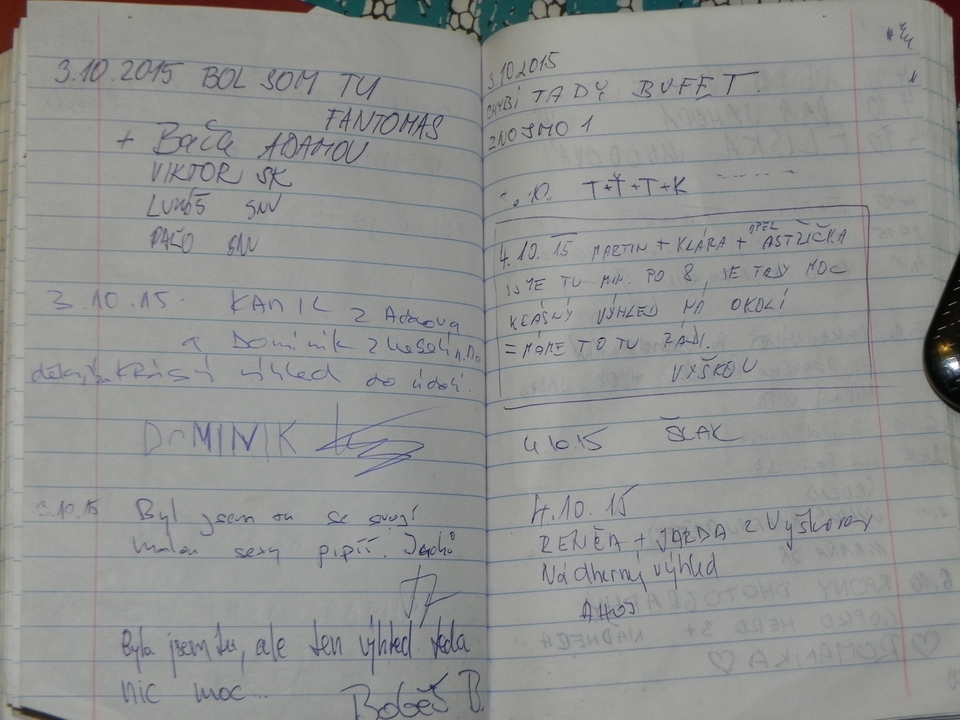 3.10.2015 BOL SOM TU
FANTOMAS
+ Bača ADAMOV
VIKTOR SK
LUKÁŠ SNV
PAĽO SNV
3.10.15. KAMIL z Adamova
a Dominik z
krásný výhled do údolí.
DOMINIK
3.10.15 Byl jsem tu se svojí
malou sexy pipíí.
Byla jsem tu, ale ten výhled teda
nic moc...
Bobeš B.
3.10.2015
CHYBÍ TADY BUFET.
ZNOJMO 1
T+Ť+T+K
4.10.15 MARTIN + KLÁRA + OPEL ASTŘIČKA
JSME TU MIN. PO 8, JE TADY MOC
KRÁSNÝ VÝHLED NA OKOLÍ
= MÁME TO TU RÁDI.
VYŠKOV
4.10.15 ŠLAK
4.10.15
RENČA + JARDA z Vyškova
Nádherný výhled
AHOJ